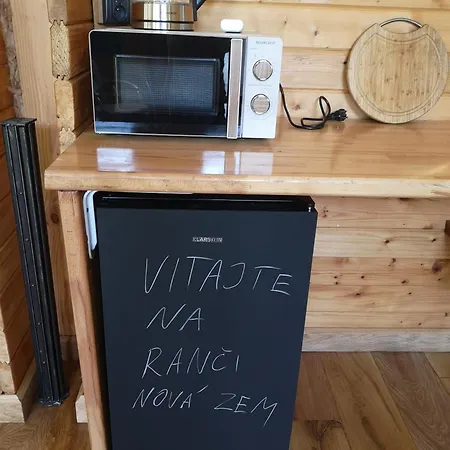 KLARSTEIN
VITAJTE
NA
RANČI
NOVÁ ZEM